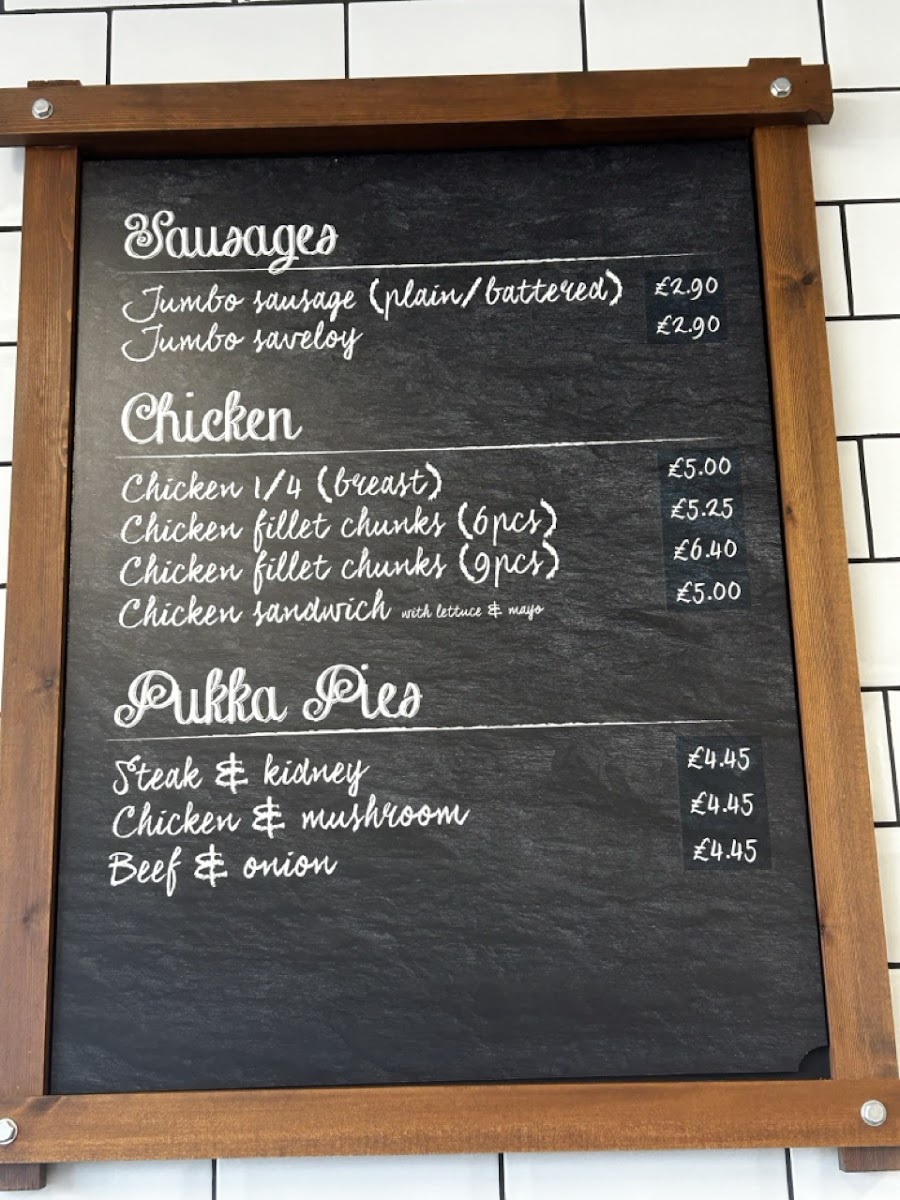 Sausages
Jumbo sausage (plain/battered) £2.90
Jumbo saveloy £2.90
Chicken
Chicken 1/4 (breast) £5.00
Chicken fillet chunks (6pcs) £5.25
Chicken fillet chunks (9pcs) £6.40
Chicken sandwich with lettuce & mayo £5.00
Pukka Pies
Steak & kidney £4.45
Chicken & mushroom £4.45
Beef & onion £4.45